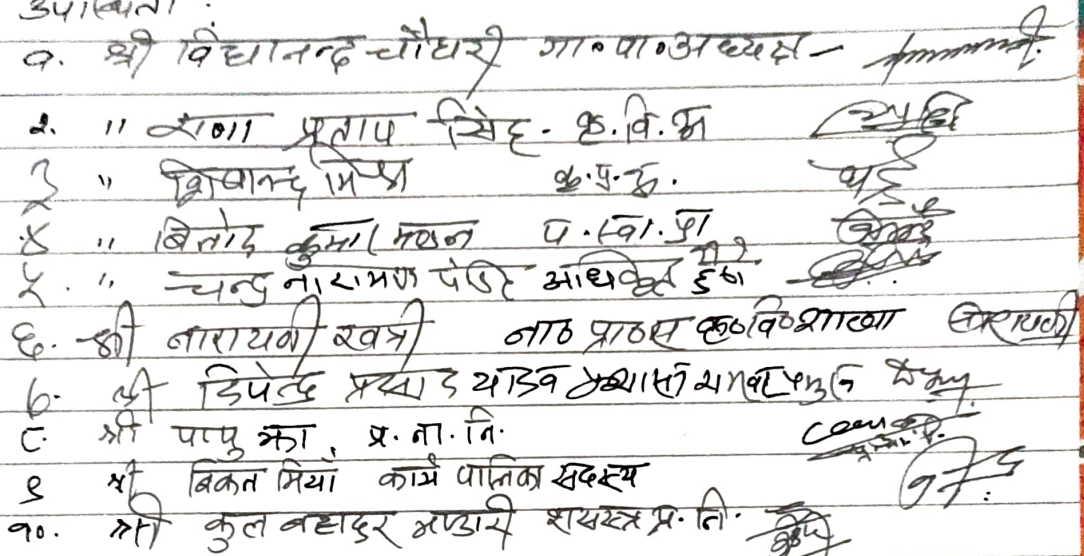 उपस्थिती :
१. श्री विद्यानन्द चौधरी गा॰पा॰अध्यक्ष –
२. " राणा प्रताप सिंह - कृ.वि.अ
३ " शिवानन्द मिश्र
४ " बिनोद कुमार मण्डल प.स्वा.प्रा
५. " चन्द्र नारायण पंडित अधिकृत
६. श्री नारायणी खत्री ना॰प्रा॰स कृ॰वि॰शाखा नारायणी
७. श्री दिपेन्द्र प्रसाद यादव
८. श्री पप्पु झा, प्र.ना.नि.
९ श्री विकन मियाँ कार्य पालिका सदस्य
१०. श्री कुल बहादुर भण्डारी शसस्त्र प्र.नि.